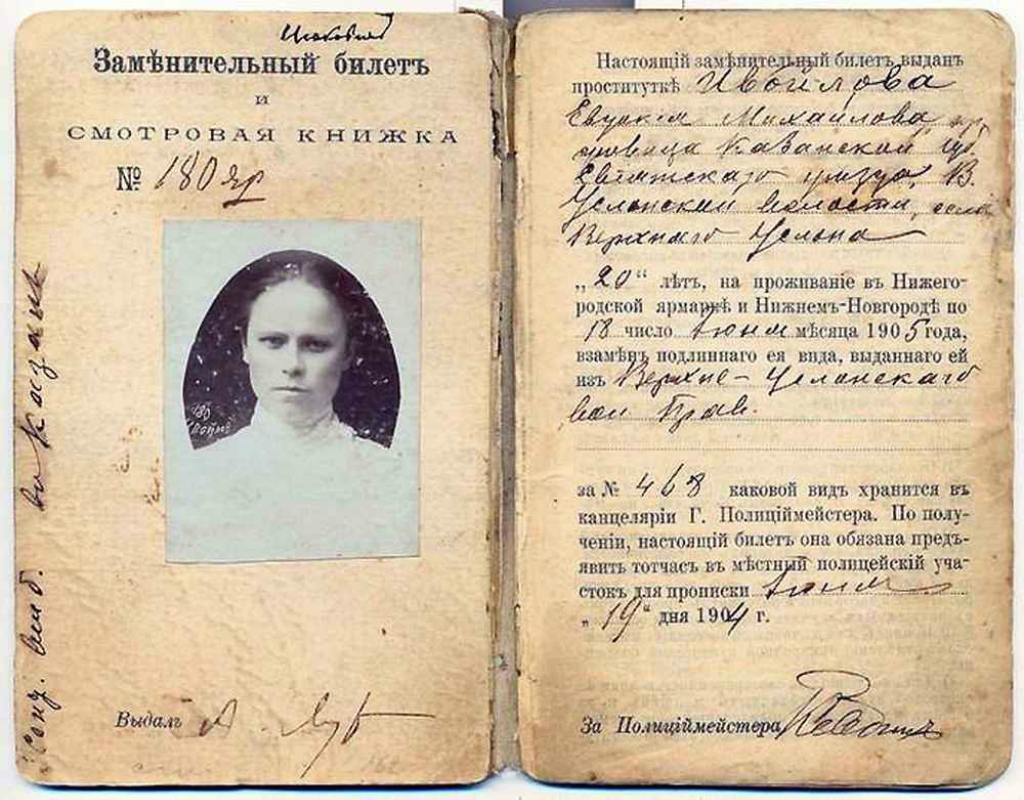 Замѣнительный билетъ
и
СМОТРОВАЯ КНИЖКА
№ 180 яр
въ Казань
180
Выдалъ А.
Настоящій замѣнительный билетъ выданъ
проституткѣ Ивойлова
Евдокія Михайлова
Казанской губ.
уѣзда, В.
Услонской волости, села
Верхняго Услона
„20“ лѣтъ, на проживаніе въ Нижего-
родской ярмаркѣ и Нижнемъ-Новгородѣ по
18 число Іюня мѣсяца 1905 года,
взамѣнъ подлиннаго ея вида, выданнаго ей
изъ Верхне-Услонскаго
вол Прав.
за № 468 каковой видъ хранится въ
канцеляріи Г. Полиціймейстера. По полу-
ченіи, настоящій билетъ она обязана предъ-
явить тотчасъ въ мѣстный полицейскій уча-
стокъ для прописки Іюня
„19“ дня 1904 г.
За Полиціймейстера